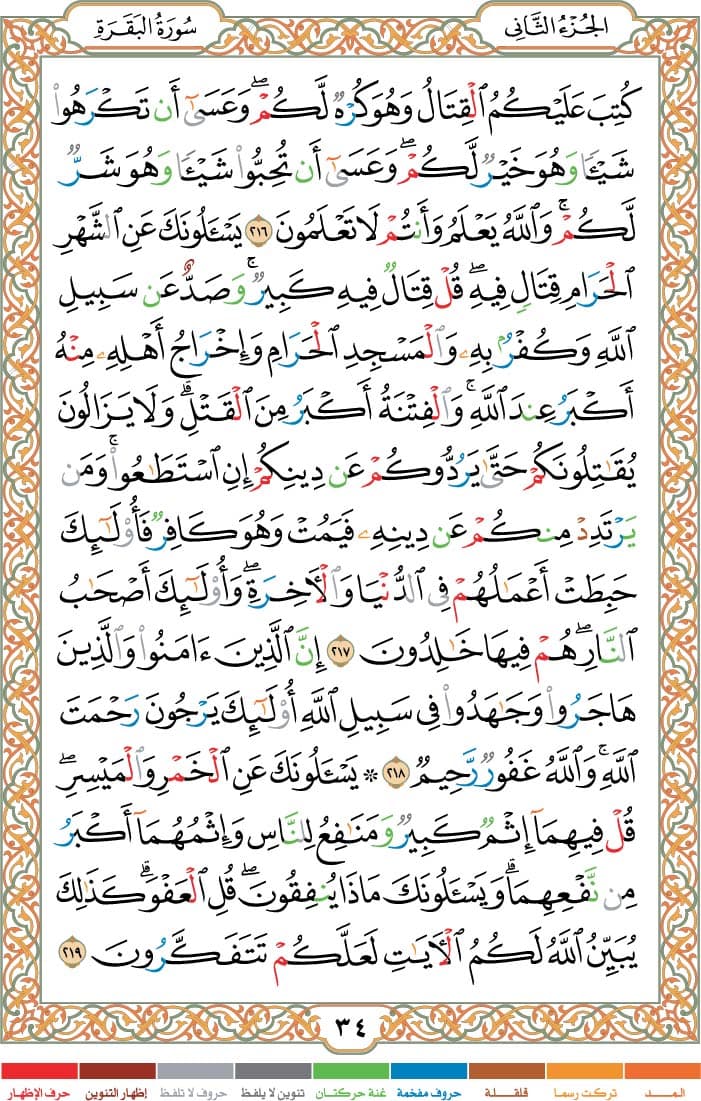 الجُزْءُ الثَّانِي
سُورَةُ البَقَرَةِ
كُتِبَ عَلَيۡكُمُ ٱلۡقِتَالُ وَهُوَ كُرۡهٞ لَّكُمۡۖ وَعَسَىٰٓ أَن تَكۡرَهُواْ
شَيۡـٔٗا وَهُوَ خَيۡرٞ لَّكُمۡۖ وَعَسَىٰٓ أَن تُحِبُّواْ شَيۡـٔٗا وَهُوَ شَرّٞ
لَّكُمۡۚ وَٱللَّهُ يَعۡلَمُ وَأَنتُمۡ لَا تَعۡلَمُونَ ٢١٦ يَسۡـَٔلُونَكَ عَنِ ٱلشَّهۡرِ
ٱلۡحَرَامِ قِتَالٖ فِيهِۖ قُلۡ قِتَالٞ فِيهِ كَبِيرٞۚ وَصَدٌّ عَن سَبِيلِ
ٱللَّهِ وَكُفۡرُۢ بِهِۦ وَٱلۡمَسۡجِدِ ٱلۡحَرَامِ وَإِخۡرَاجُ أَهۡلِهِۦ مِنۡهُ
أَكۡبَرُ عِندَ ٱللَّهِۚ وَٱلۡفِتۡنَةُ أَكۡبَرُ مِنَ ٱلۡقَتۡلِۗ وَلَا يَزَالُونَ
يُقَٰتِلُونَكُمۡ حَتَّىٰ يَرُدُّوكُمۡ عَن دِينِكُمۡ إِنِ ٱسۡتَطَٰعُواْۚ وَمَن
يَرۡتَدِدۡ مِنكُمۡ عَن دِينِهِۦ فَيَمُتۡ وَهُوَ كَافِرٞ فَأُوْلَٰٓئِكَ
حَبِطَتۡ أَعۡمَٰلُهُمۡ فِي ٱلدُّنۡيَا وَٱلۡأٓخِرَةِۖ وَأُوْلَٰٓئِكَ أَصۡحَٰبُ
ٱلنَّارِۖ هُمۡ فِيهَا خَٰلِدُونَ ٢١٧ إِنَّ ٱلَّذِينَ ءَامَنُواْ وَٱلَّذِينَ
هَاجَرُواْ وَجَٰهَدُواْ فِي سَبِيلِ ٱللَّهِ أُوْلَٰٓئِكَ يَرۡجُونَ رَحۡمَتَ
ٱللَّهِۚ وَٱللَّهُ غَفُورٞ رَّحِيمٞ ٢١٨ ۞ يَسۡـَٔلُونَكَ عَنِ ٱلۡخَمۡرِ وَٱلۡمَيۡسِرِۖ
قُلۡ فِيهِمَآ إِثۡمٞ كَبِيرٞ وَمَنَٰفِعُ لِلنَّاسِ وَإِثۡمُهُمَآ أَكۡبَرُ
مِن نَّفۡعِهِمَاۗ وَيَسۡـَٔلُونَكَ مَاذَا يُنفِقُونَۖ قُلِ ٱلۡعَفۡوَۗ كَذَٰلِكَ
يُبَيِّنُ ٱللَّهُ لَكُمُ ٱلۡأٓيَٰتِ لَعَلَّكُمۡ تَتَفَكَّرُونَ ٢١٩
٣٤
المــــد
تركت رسما
قلقـــلة
حروف مفخمة
غنة حركتان
تنوين لا يلفظ
حروف لا تلفظ
إظهار التنوين
حرف الإظهار